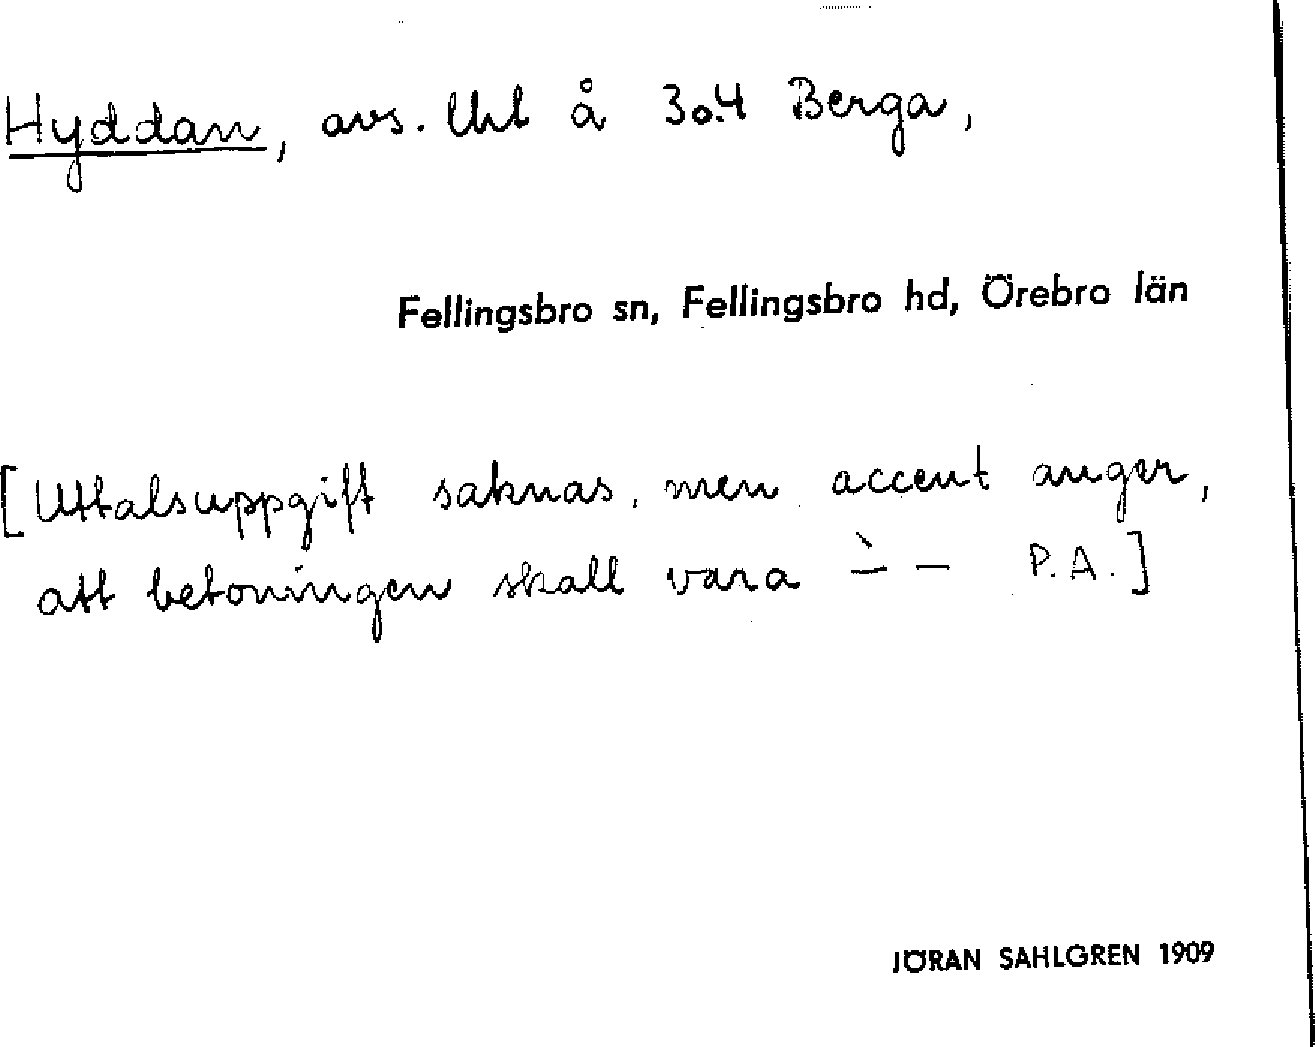 Hyddan, avs. lht å 3o.4 Berga,
Fellingsbro sn, Fellingsbro hd, Örebro län
[Uttalsuppgift saknas, men accent anger,
att betoningen skall vara –̀ – P.A.]
JÖRAN SAHLGREN 1909